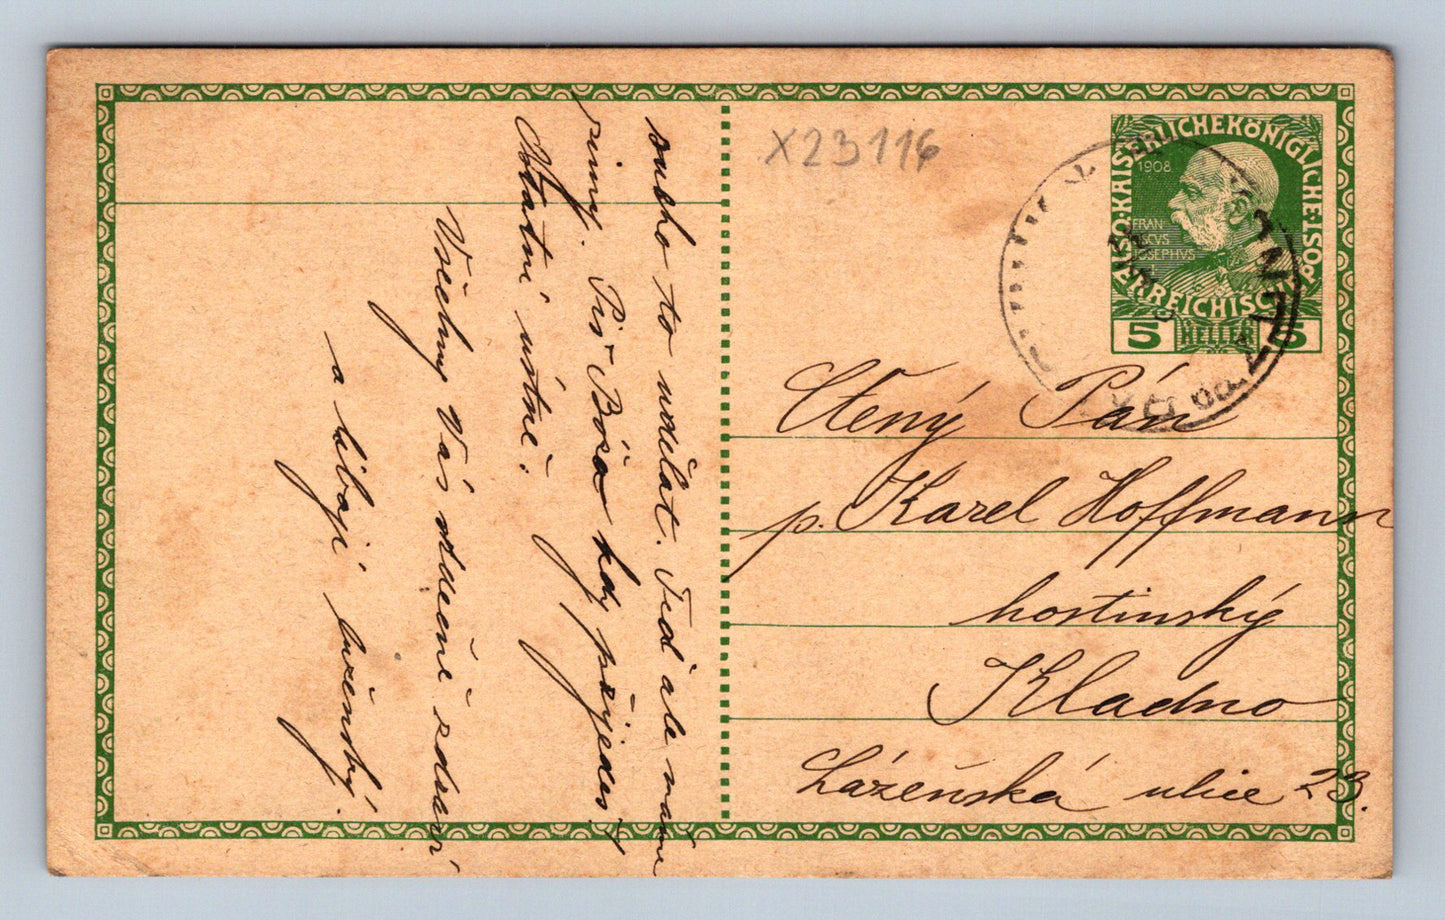 X23116
KAISERLICHE KÖNIGLICHE ÖSTERREICHISCHE
1908
FRAN
CISCVS
IOSEPHVS
5 HELLER 5
Ctěný Pán
p. Karel Hoffmann
hostinský
Kladno
Lázeňská ulice 23.
to udělat. Teď ale máme
Piš Bóža kdy přijedeš.
Ostatní ústně.
Všechny Vás srdečně zdraví
a líbají